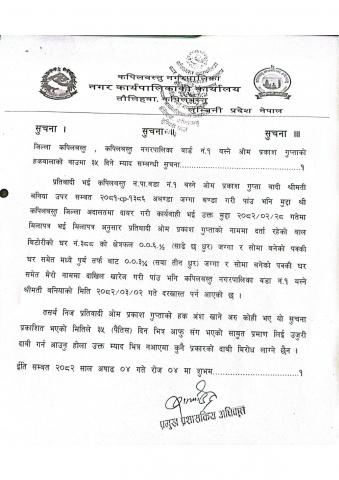 कपिलवस्तु नगरपालिका
नगर कार्यपालिकाको कार्यालय
तौलिहवा, कपिलवस्तु
लुम्बिनी प्रदेश नेपाल
सुचना । सुचना ।। सुचना ।।।
जिल्ला कपिलवस्तु, कपिलवस्तु नगरपालिका वार्ड नं.१ बस्ने ओम प्रकाश गुप्ताको
हकवालाको नाउमा ३५ दिने म्याद सम्बन्धी सुचना..........१
प्रतिवादी भई कपिलवस्तु न.पा.वडा नं.१ बस्ने ओम प्रकाश गुप्ता वादी श्रीमती
बनिया उपर सम्वत २०८१-cp-१३८६ अचण्डा जग्गा चण्डा गरी पाउं भनि मुद्दा श्री
कपिलवस्तु जिल्ला अदालतमा दायर गरी कार्यवाही भई उक्त मुद्दा २०८२/०२/२८ गतेमा
मिलापत्र भई मिलापत्र अनुसार प्रतिवादी ओम प्रकाश गुप्ताको नाममा दर्ता रहेको साल
बिटोरीको घर नं.३८८ को क्षेत्रफल ०.०.६.½ (साढे छ धुर) जग्गा र सोमा बनेको पक्की
घर समेत मध्ये पुर्व तर्फ बाट ०.०.३¼ (सवा तीन धुर) जग्गा र सोमा बनेको पक्की घर
समेत मेरो नाममा दाखिल खारेज गरी पाउं भनि कपिलवस्तु नगरपालिका वडा नं.१ बस्ने
श्रीमती बनियाको मिति २०८२/०३/०२ गते दरखास्त पर्न आएको छ ।
तसर्थ निज प्रतिवादी ओम प्रकाश गुप्ताको हक अंश खाने अरु कोही भए यो सुचना
प्रकाशित भएको मितिले ३५ (पैतिस) दिन भित्र आफु संग भएको सावुत प्रमाण लिई उजुरी
दावी गर्न आउनु होला उक्त म्याद भित्र नआएमा कुनै प्रकारको दावी बिरोध लाग्ने छैन ।
ईति सम्वत २०८२ साल अषाढ ०४ गते रोज ०४ मा शुभम..........१
प्रमुख प्रशासकिय अधिकृत